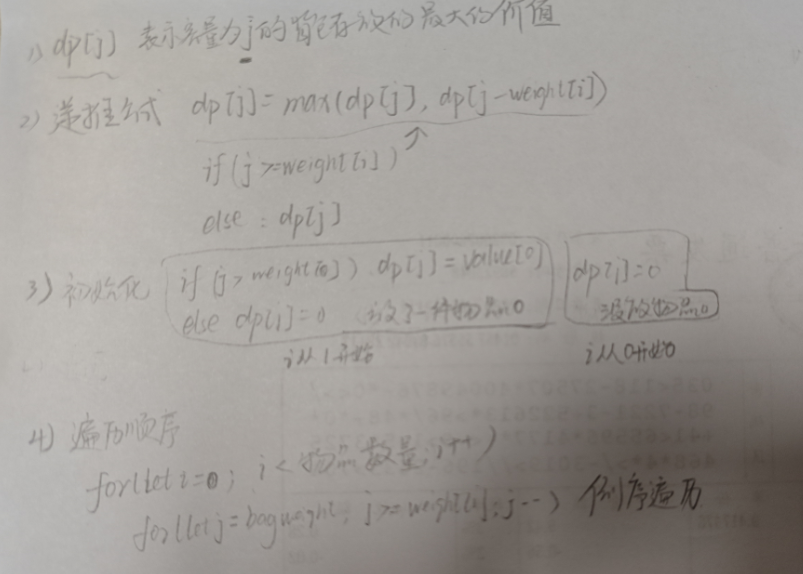 1) dp[j] 表示容量为j的背包存放的最大的价值
2) 递推公式 dp[j]=max(dp[j], dp[j-weight[i])
if(j>=weight[i])
else : dp[j]
3) 初始化 if (j>weight[0]) dp[j]=value[0] dp[j]=0
else dp[j]=0 放了一件物品0 没放物品0
i从1开始 i从0开始
4) 遍历顺序
for(let i=0; i<物品数量; i++)
for(let j=bagweight; j>=weight[i]; j--) 倒序遍历